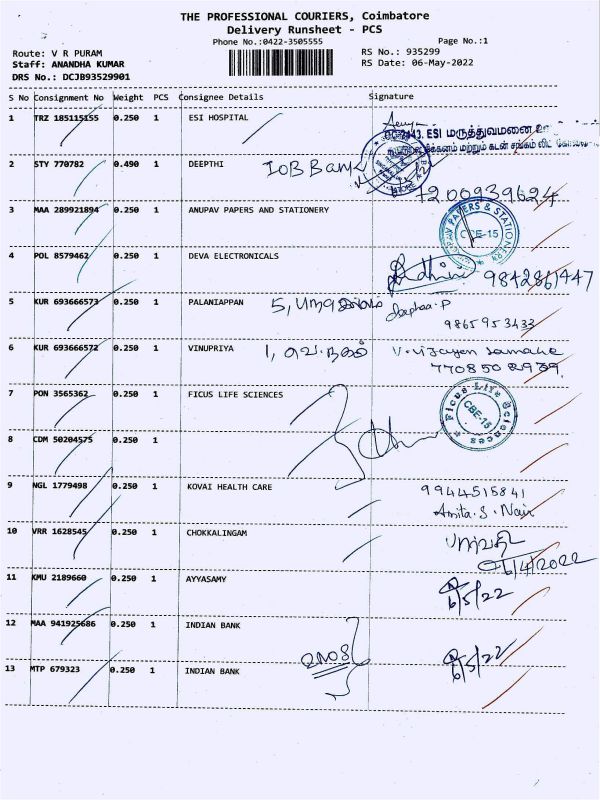 THE PROFESSIONAL COURIERS, Coimbatore
Delivery Runsheet - PCS
Phone No.:0422-3505555 Page No.:1
Route: V R PURAM RS No.: 935299
Staff: ANANDHA KUMAR RS Date: 06-May-2022
DRS No.: DCJB93529901
S No Consignment No Weight PCS Consignee Details Signature
1 TRZ 185115155 0.250 1 ESI HOSPITAL
ESI மருத்துவமனை
மற்றும் கடன் சங்கம் லிட்
2 STY 770782 0.490 1 DEEPTHI IOB Bank
7200939624
3 MAA 289921894 0.250 1 ANUPAV PAPERS AND STATIONERY
PAPERS & STATIONERY
CBE-15
4 POL 8579462 0.250 1 DEVA ELECTRONICALS
9842861447
5 KUR 693666573 0.250 1 PALANIAPPAN 5,
9865953433
6 KUR 693666572 0.250 1 VINUPRIYA 1,
7708502939
7 PON 3565362 0.250 1 FICUS LIFE SCIENCES
Ficus Life Sciences
CBE-15
8 CDM 50204575 0.250 1
9 NGL 1779498 0.250 1 KOVAI HEALTH CARE 9944515841
Anita. S. Nair
10 VRR 1628545 0.250 1 CHOKKALINGAM
6/4/2022
11 KMU 2189660 0.250 1 AYYASAMY
6/5/22
12 MAA 941925686 0.250 1 INDIAN BANK
6/5/22
13 MTP 679323 0.250 1 INDIAN BANK